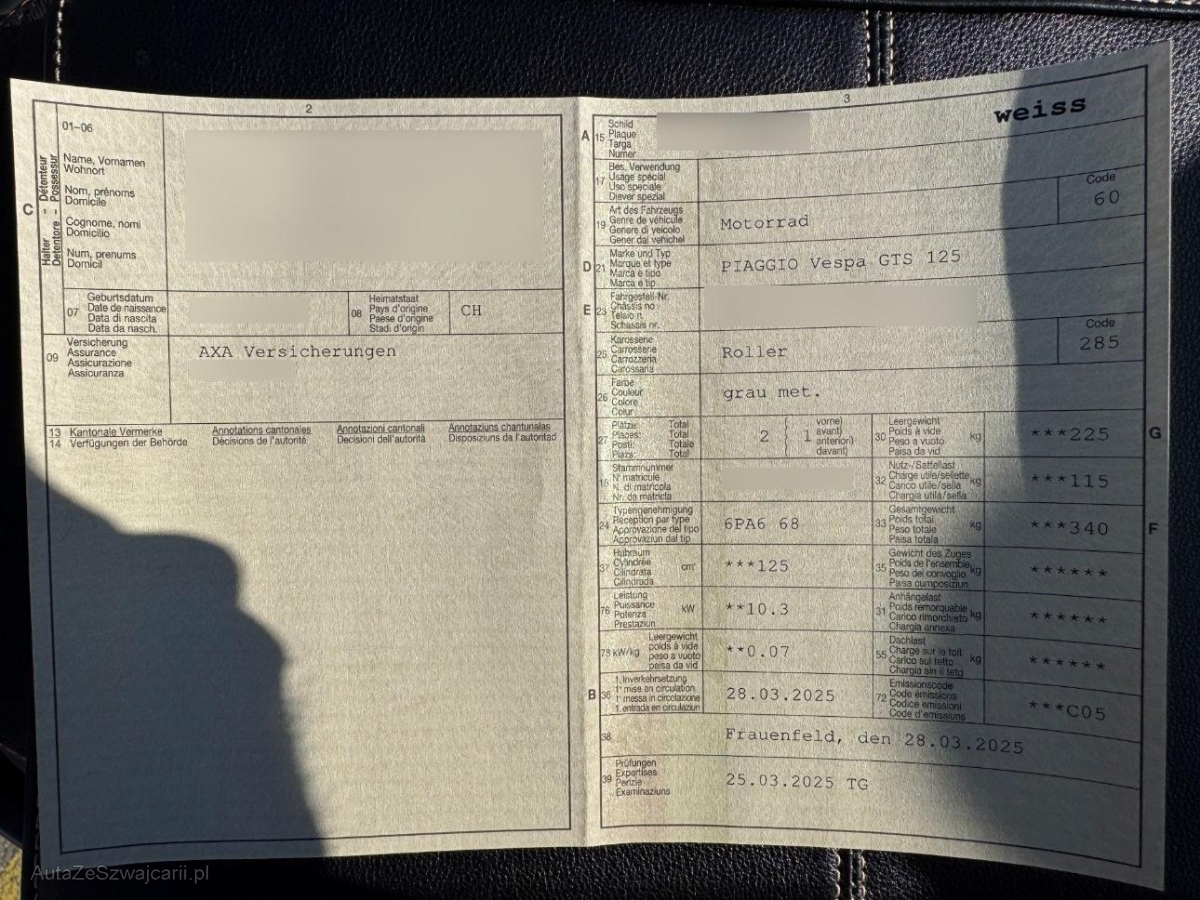 2
01–06
Halter – Détenteur
Detentore – Possessur
C
Name, Vornamen
Wohnort
Nom, prénoms
Domicile
Cognome, nomi
Domicilio
Num, prenums
Domicil
07
Geburtsdatum
Date de naissance
Data di nascita
Data da nasch.
08
Heimatstaat
Pays d'origine
Paese d'origine
Stadi d'origin
CH
09
Versicherung
Assurance
Assicurazione
Assicuranza
AXA Versicherungen
13
14
Kantonale Vermerke
Verfügungen der Behörde
Annotations cantonales
Décisions de l'autorité
Annotazioni cantonali
Decisioni dell'autorità
Annotaziuns chantunalas
Disposiziuns da l'autoritad
3
weiss
A
15
Schild
Plaque
Targa
Numer
17
Bes. Verwendung
Usage spécial
Uso speciale
Diever spezial
19
Art des Fahrzeugs
Genre de véhicule
Genere di veicolo
Gener dal vehichel
Motorrad
Code
60
D
21
Marke und Typ
Marque et type
Marca e tipo
Marca e tip
PIAGGIO Vespa GTS 125
E
23
Fahrgestell-Nr.
Châssis no
Telaio n.
Schassis nr.
25
Karosserie
Carrosserie
Carrozzeria
Carossaria
Roller
Code
285
26
Farbe
Couleur
Colore
Colur
grau met.
27
Plätze: Total
Places: Total
Posti: Totale
Plazs: Total
2
1
vorne)
avant)
anteriori)
davant)
30
Leergewicht
Poids à vide
Peso a vuoto
Paisa da vid
kg
***225
G
18
Stammnummer
N° matricule
N. di matricola
Nr. da matricla
32
Nutz-/Sattellast
Charge utile/sellette
Carico utile/sella
Chargia utila/sella
kg
***115
24
Typengenehmigung
Réception par type
Approvazione del tipo
Approvaziun dal tip
6PA6 68
33
Gesamtgewicht
Poids total
Peso totale
Paisa totala
kg
***340
F
37
Hubraum
Cylindrée
Cilindrata
Cilindrada
cm³
***125
35
Gewicht des Zuges
Poids de l'ensemble
Peso del convoglio
Paisa cumposiziun
kg
******
76
Leistung
Puissance
Potenza
Prestaziun
kW
**10.3
31
Anhängelast
Poids remorquable
Carico rimorchiato
Chargia annexa
kg
******
78
kW/kg
Leergewicht
poids à vide
peso a vuoto
paisa da vid
**0.07
55
Dachlast
Charge sur le toit
Carico sul tetto
Chargia sin il tetg
kg
******
B
36
1. Inverkehrsetzung
1re mise en circulation
1a messa in circolazione
1. entrada en circulaziun
28.03.2025
72
Emissionscode
Code émissions
Codice emissioni
Code d'emissiuns
***C05
38
Frauenfeld, den 28.03.2025
39
Prüfungen
Expertises
Perizie
Examinaziuns
25.03.2025 TG
AutaZeSzwajcarii.pl